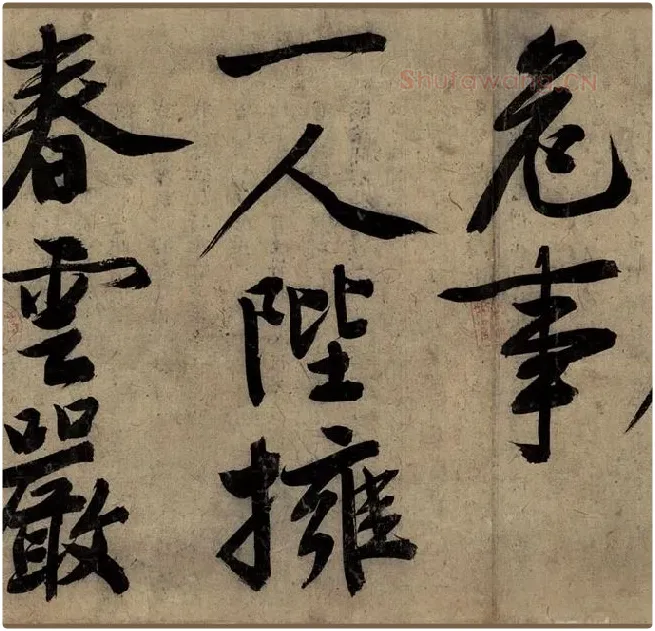 危事
一人陛擁
春雲嚴
Shufawang.CN